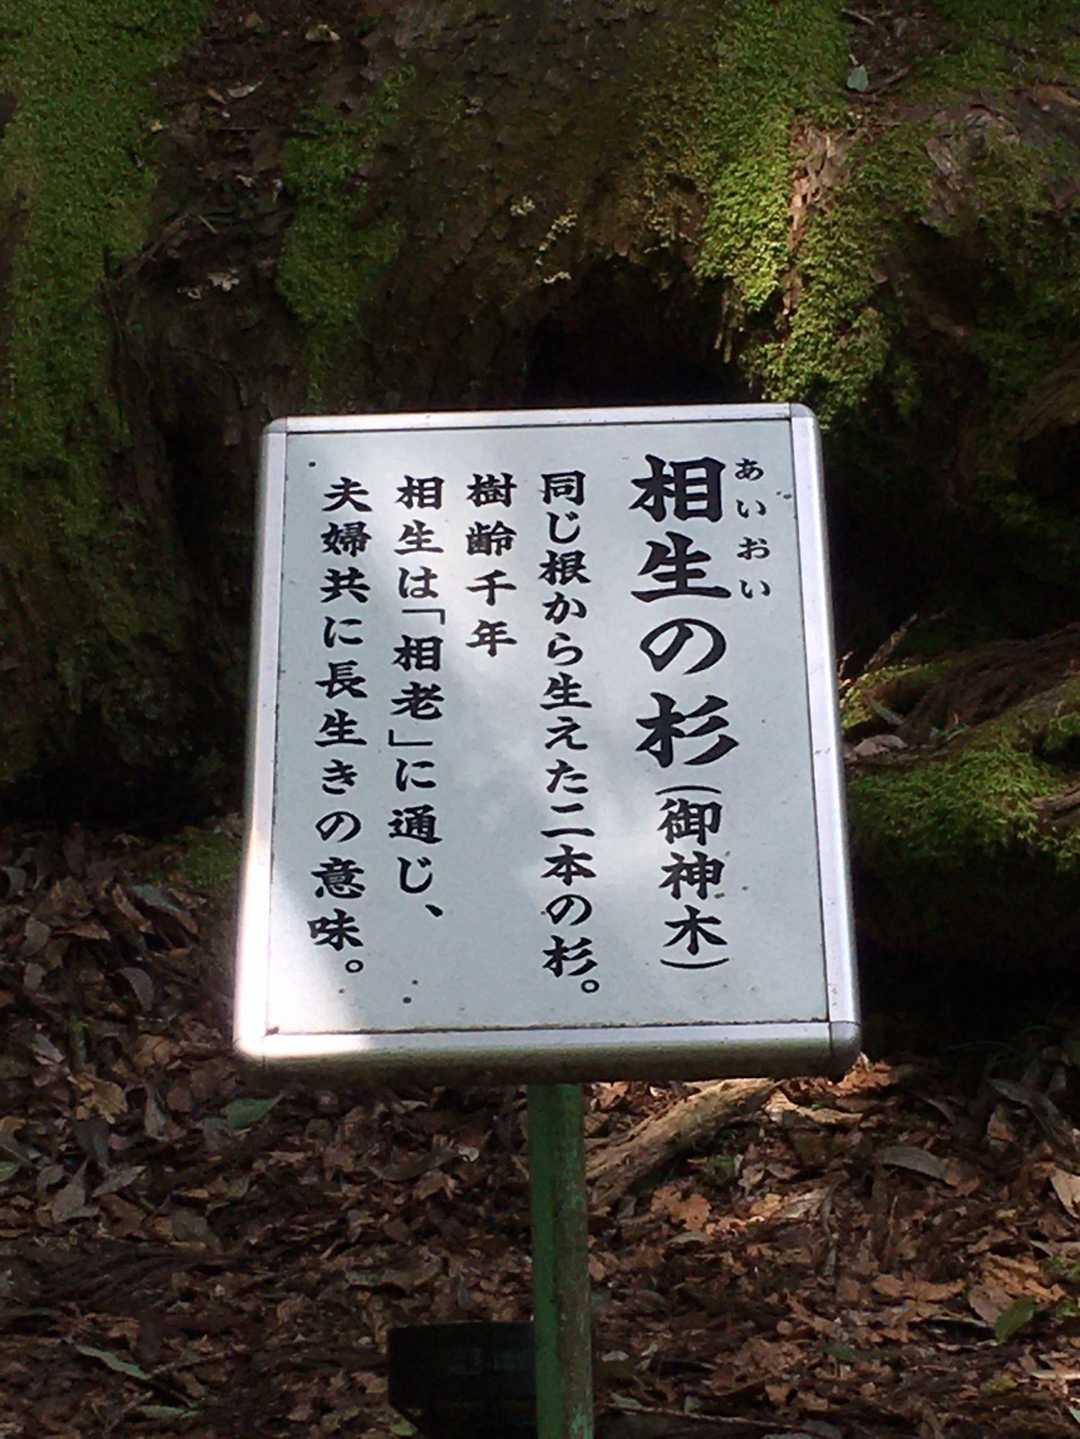 相生の杉(御神木)
あいおい
同じ根から生えた二本の杉。
樹齢千年
相生は「相老」に通じ、
夫婦共に長生きの意味。